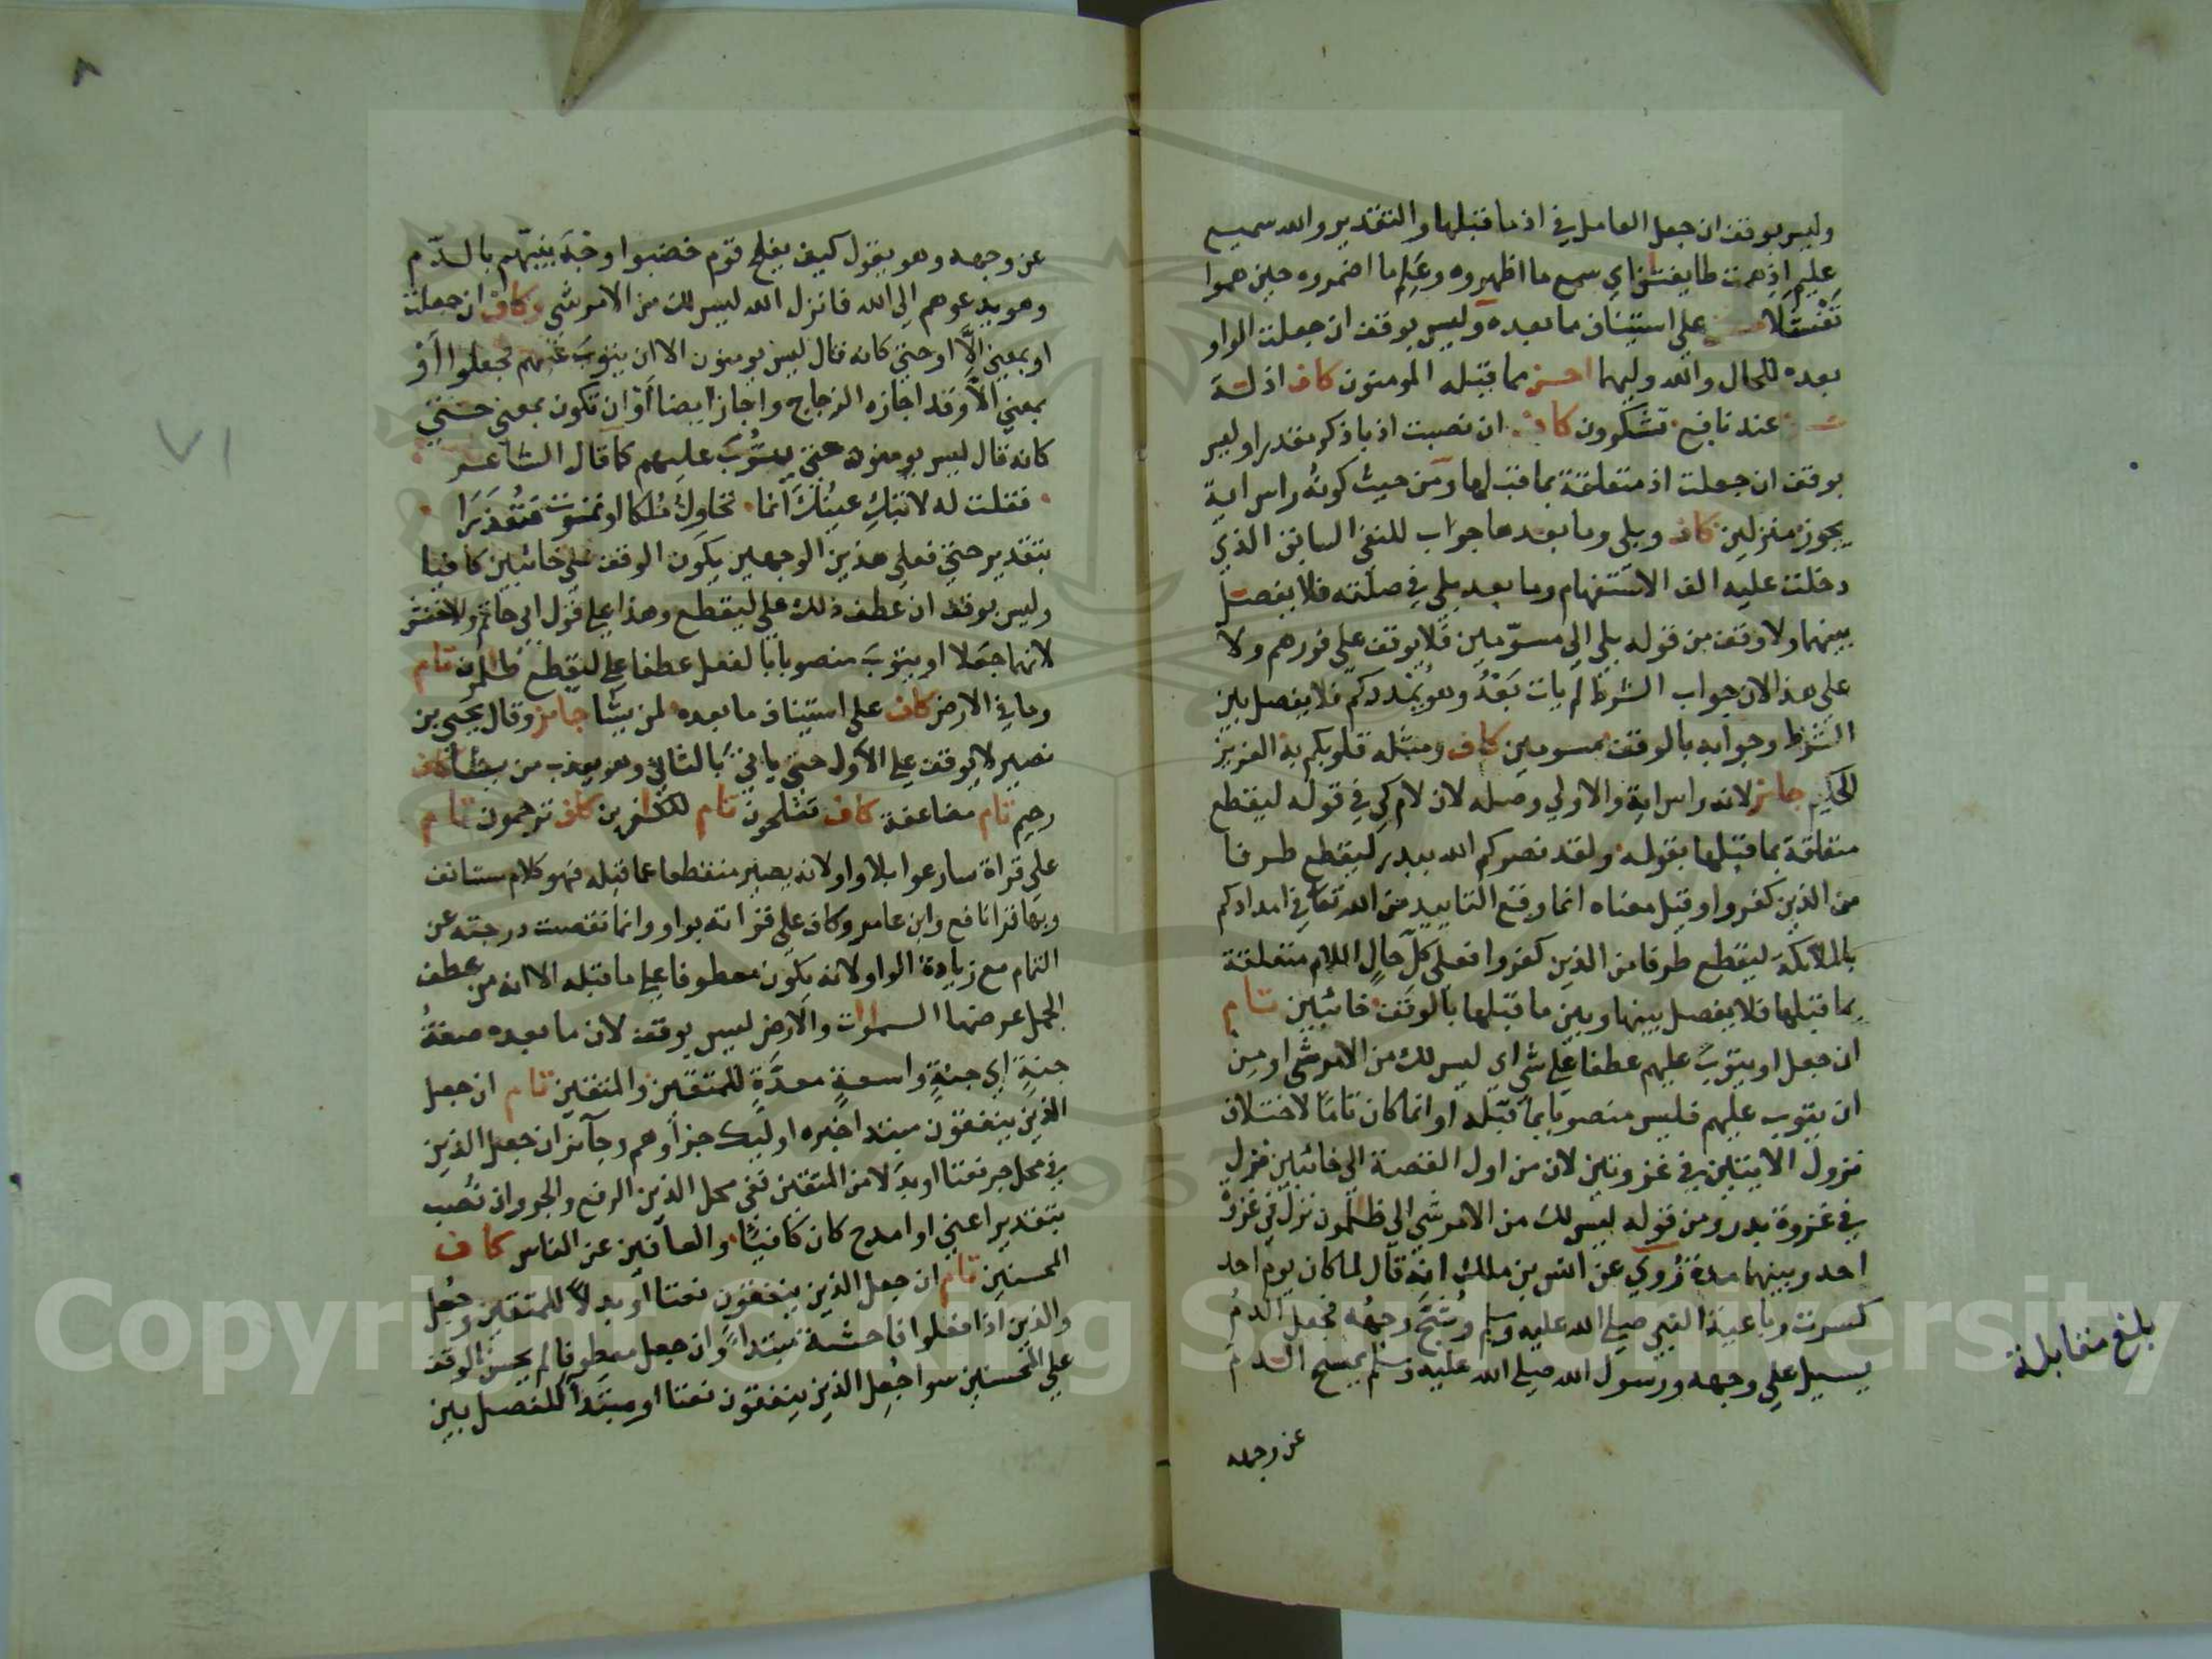 وليس بوقف ان جعل العامل في اذ ما قبلها والتقدير والله سميع
عليم اذ همت طايفتان اي سمع ما اظهروه وعلم ما اضمروه حين هموا
تفشلا على استيناف ما بعده وليس بوقف ان جعلت الواو
بعده للحال والله وليهما احسن مما قبله المومنون كاف اذلة
عند نافع تشكرون كاف ان نصبت اذ باذكر مقدرا وليس
بوقف ان جعلت اذ متعلقة بما قبلها ومن حيث كونه راس اية
يجوز منزلين كاف وبلى وما بعدها جواب للنفي السابق الذي
دخلت عليه الف الاستفهام وما بعد بلى في صلته فلا يفصل
بينهما ولا وقف من قوله بلى الى مسوّمين فلا يوقف على فورهم ولا
على هذا لان جواب الشرط لم يات بَعْدُ وهو يمددكم فلا يفصل بين
الشرط وجوابه بالوقف مسومين كاف ومثله قلوبكم به العزيز
الحكيم جائز لانه راس اية والاولى وصله لان لام كي في قوله ليقطع
متعلقة بما قبلها بقوله ولقد نصركم الله ببدر ليقطع طرفا
من الذين كفروا وقيل معناه انما وقع التاييد من الله تعا في امدادكم
بالملائكة ليقطع طرفا من الذين كفروا فعلى كل حالٍ اللام متعلقة
بما قبلها فلا يفصل بينها وبين ما قبلها بالوقف خائبين تام
ان جعل او يتوبَ عليهم عطفا على شي اي ليس لك من الامر شي او من
ان يتوب عليهم فليس منصوبا بما قبله وانما كان تامًا لاختلاف
نزول الايتين في غزوتين لان من اول القصة الى خائبين نزل
في غزوة بدر ومن قوله ليس لك من الامر شي الى ظلمون نزل في غزوة
احد وبينهما مدة رُوي عن انس بن ملك انه قال لما كان يوم احد
كسرت رباعية النبي صلى الله عليه وسلم وشُجّ وجهه فجعل الدمُ
يسيل على وجهه ورسول الله صلى الله عليه وسلم يمسح الدم
عن وجهه
بلغ مقابلة
عن وجهه وهو يقول كيف يفلح قوم خضبوا وجهَ نبيّهم بالدّم
وهو يدعوهم الى الله فانزل الله ليس لك من الامر شي وكاف ان جعلت
او بمعنى إلّا او حتى كانه قال ليس يومنون الا ان يتوبَ عليهم فجعلوا أَوْ
بمعنى الّا وقد اجازه الزجاج واجاز ايضا أَوْ ان تكون بمعنى حتى
كانه قال ليس يومنون حتى يتوبَ عليهم كما قال الشاعر
فقلت له لا تبكِ عينُك انما نحاول مُلكا او نموت فنُعذرا
بتقدير حتى فعلى هذين الوجهين يكون الوقف على خائبين كافيا
وليس بوقف ان عطف ذلك على ليقطع وهذا على قول ابي حاتم والاخفش
لانهما جعلا او يتوبَ منصوبا بالفعل عطفا على ليقطع ظلمون تام
وما في الارض كاف على استيناف ما بعده لمن يشا جائز وقال يحيى بن
نصير لا يوقف على الاول حتى ياتيَ بالثاني وهو يعذب من يشا كاف
رحيم تام مضاعفة كاف تفلحون تام للكفرين كاف ترحمون تام
على قراة سارعوا بلا واو لانه يصير منقطعا عما قبله فهو كلام مستانف
وبها قرا نافع وابن عامر وكاف على قراته بواو وانما نقصت درجته عن
التمام مع زيادة الواو لانه يكون معطوفا على ما قبله الا انه من عطف
الجمل عرضها السموات والارض ليس بوقف لان ما بعده صفةُ
جنةٍ اي جنةٍ واسعةٍ معدَّةٍ للمتقين والمتقين تام ان جعل
الذين ينفقون مبتدا خبره اوليك جزاوهم وجائز ان جعل الذين
في محل جر نعتا او بدلا من المتقين ففي محل الذين الرفع والجر وان نُصب
بتقدير اعني او امدح كان كافيًا والعافين عن الناس كاف
المحسنين تام ان جعل الذين ينفقون نعتا او بدلًا للمتقين وجُعل
والذين اذا فعلوا فاحشة مبتدأً وان جعل معطوفا لم يحسن الوقف
على المحسنين سوا جُعل الذين ينفقون نعتا او مبتدأ للفصل بين
٧١
Copyright © King Saud University